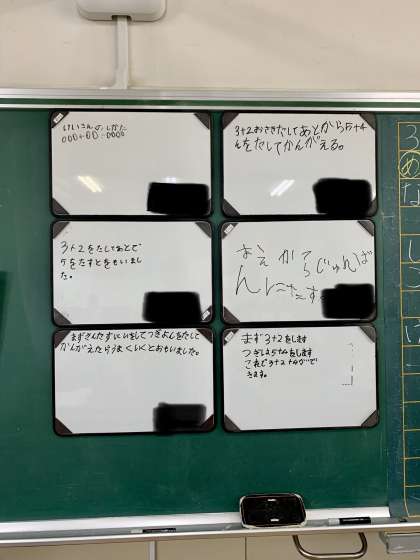 けいさんのしかた
000+00=0000
3+2おさきたしてあとから5+4
んをたしてかんがえる。
3+2をたしてあとで
5をたすとをもいまし
た。
まえからじゅんば
んにたす
まずさんたすにいをしてつぎよんをたして
かんがえたらうまくいくとおもいました。
まず3+2をします
つぎは5+4をします
これで3+2+4がで
きます。
3
め
な